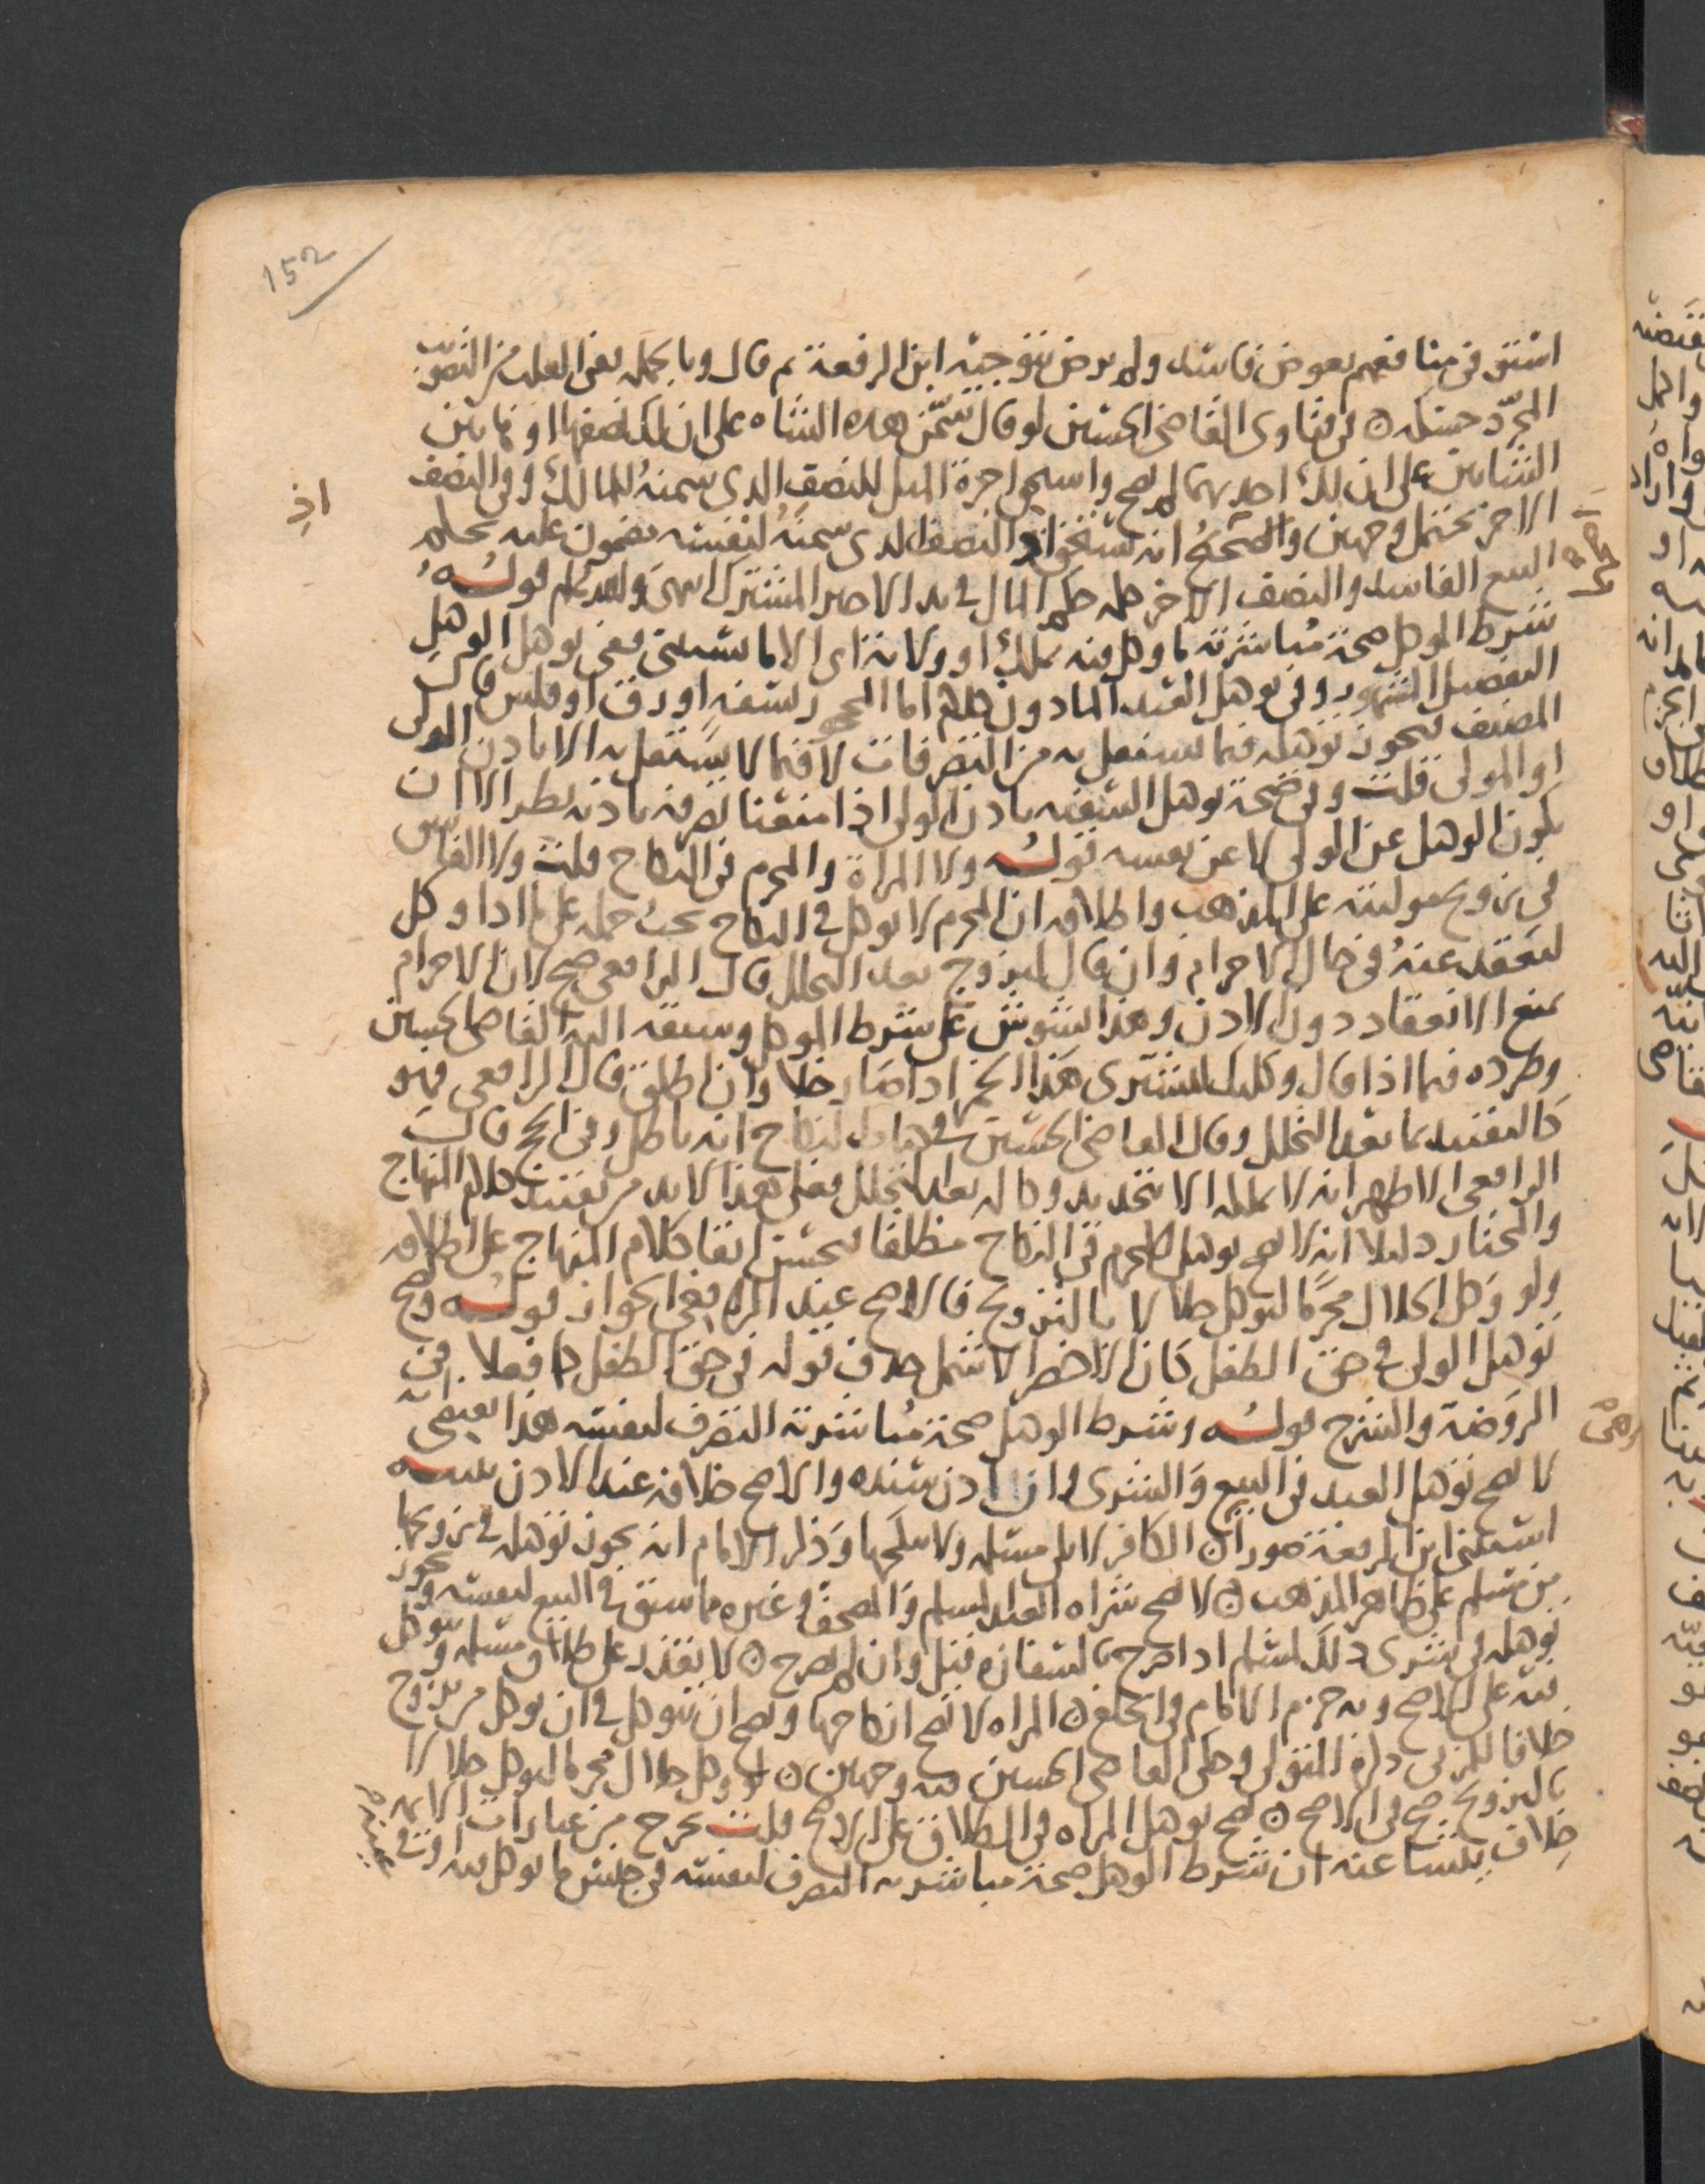 152
استوفى منافعهم بعوض فاسد ولم يرض بتوجيه ابن الرفعة ثم قال وبالجملة ففي القلب من التصوير
المجرد حسيكة ٥ في فتاوى القاضي الحسين لو قال سمن هذه الشاه على ان لك نصفها او هاتين
الشاتين على ان لك احديهما لم يصح واستحق اجرة المثل للنصف الذي سمنه للمالك وفي النصف
الاخر يحتمل وجهين والصحيح انه يستحق اذ النصف الذي سمنه لنفسه مضمون عليه بحكم
اذ
البيع الفاسد والنصف الاخر حكمه حكم المال في يد الاجير المشترك انتهى قوله
شرط الموكل صحة مباشرته ما وكل فيه بملك او ولاية اي الا ما يستثنى ففي توكيل الوكيل
التفصيل المشهور وفي توكيل العبد المادون كلام اما المحجور بسفه او رق او فلس قال
المصنف يجوز توكيله فيما يستقل به من التصرفات لا فيما لا يستقل به الا باذن الولي
او المولى قلت وفي صحة توكيل السفيه باذن الولي اذا منعنا تصرفه باذنه نظر الا ان
يكون الوكيل عن الولي لا عن نفسه قوله ولا المراة والمحرم في النكاح قلت ولا الفاسق
في تزويج موليته على المذهب واطلاقه ان المحرم لا يوكل في النكاح يجب حمله على ما اذا وكل
ليعقد عنه في حال الاحرام وان قال لتزوج بعد التحلل قال الرافعي صح لان الاحرام
يمنع الانعقاد دون الاذن وهذا يشوش على شرط الموكل وسبقه اليه القاضي الحسين
وطرده فيما اذا قال وكلتك لتشتري هذا الخمر اذا صار خلا وان اطلق قال الرافعي فهو
كالتقييد بما بعد التحلل وقال القاضي الحسين في النكاح انه باطل وفي الحج قال
الرافعي الاظهر انه لا يملكه الا بتجديد وكالة بعد التحلل فعلى هذا لا بد من تقييد كلام المنهاج
والمختار دليلا انه لا يصح توكيل المحرم في النكاح مطلقا فيحسن ابقا كلام المنهاج على اطلاقه
ولو وكل الحلال محرما ليوكل حلالا بالتزويج فالاصح عند الرافعي الجواز قوله ويصح
توكيل الولي في حق الطفل كان الاخصر الاشمل حذف قوله في حق الطفل كما فعلا في
الروضة والشرح قوله وشرط الوكيل صحة مباشرته التصرف لنفسه هذا يقتضي انه
لا يصح توكيل العبد في البيع والشرى وان اذن سيده والاصح خلافه عند الاذن تنبيه
استثنى ابن الرفعة صورا ان الكافر لا يلي مسلمه ولا ينكحها وذكر الامام انه يجوز توكيله في تزويجها
من مسلم على ظاهر المذهب ٥ لا يصح شراه العبد المسلم والمصحف وغيره ما سبق في البيع لنفسه ويجوز
توكيله في شرى ذلك لمسلم اذا صرح بالسفارة قيل وان لم يصرح ٥ لا يقدر على طلاق مسلمه ويتوكل
فيه على الاصح وبه جزم الامام في الخلع ٥ المراه لا يصح انكاحها ويصح ان تتوكل في ان توكل من يزوج
خلافا للمزني ذكره المتولي وحكى القاضي الحسين فيه وجهين ٥ لو وكل حلال محرما ليوكل حلالا
بالتزويج صح في الاصح ٥ يصح توكيل المراه في الطلاق على الاصح قلت يخرج من عبارات الايمه
خلاف ينشا عنه ان شرط الوكيل صحة مباشرته التصرف لنفسه في جنس ما يوكل فيه او في
عينه